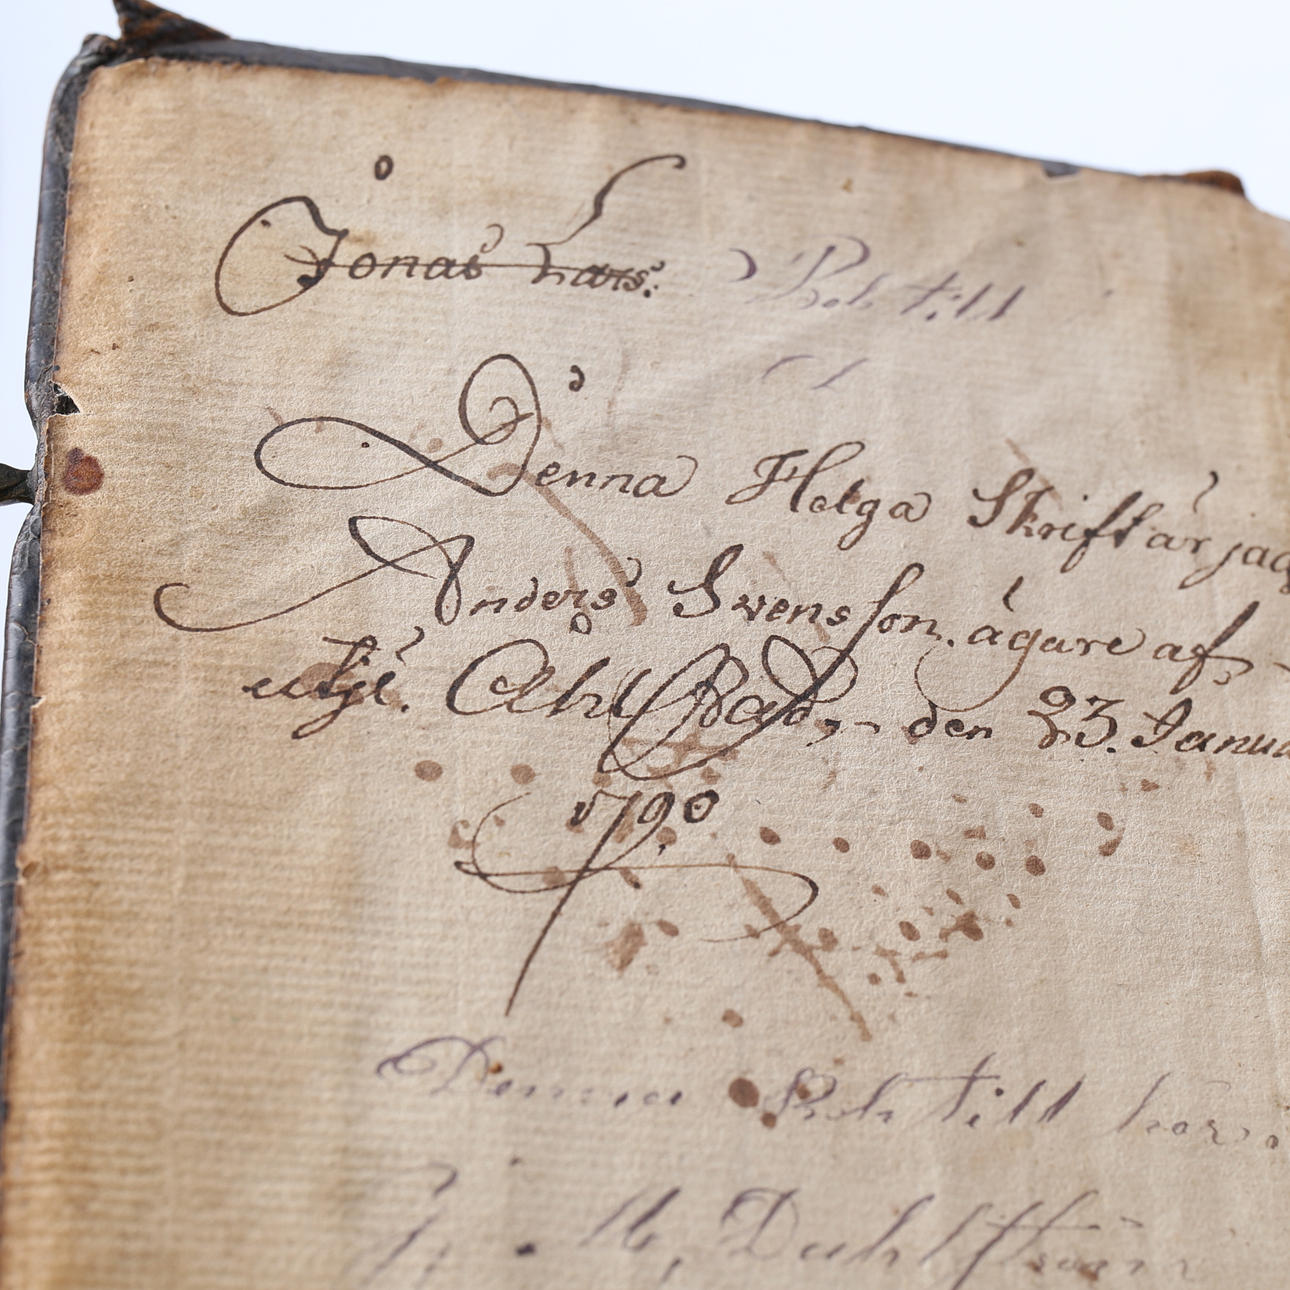 Jonas Lars: Bok till
Denna Helga Skrift är jag
Anders Svensson. ägare af
uti Ahl den 23. Janua
1790
Denna Bok till hör
J. M. Dahlström